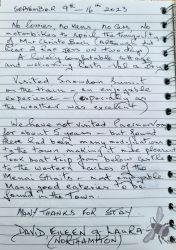 SEPTEMBER 9th - 16th 2023
No phones, no news, no cars, no
motorbikes to spoil the tranquility
of Mur Crusto Barn (Although did
hear a few jets on our trip)
A lovely comfortable cottage
and welcoming hosts
Visited Snowdon Summit
on the train - an enjoyable
experience - especially as
the weather was excellent
We have not visited Caernarfon
for about 5 years - but found
there had been many modifications
in the Town making it more pleasant
Took boat trip from below castle
to the western reaches of the
Menai Straits - most enjoyable
Many good eateries to be
found in the Town.
MANY THANKS FOR STAY
DAVID EILEEN & LAURA
(NORTHAMPTON)